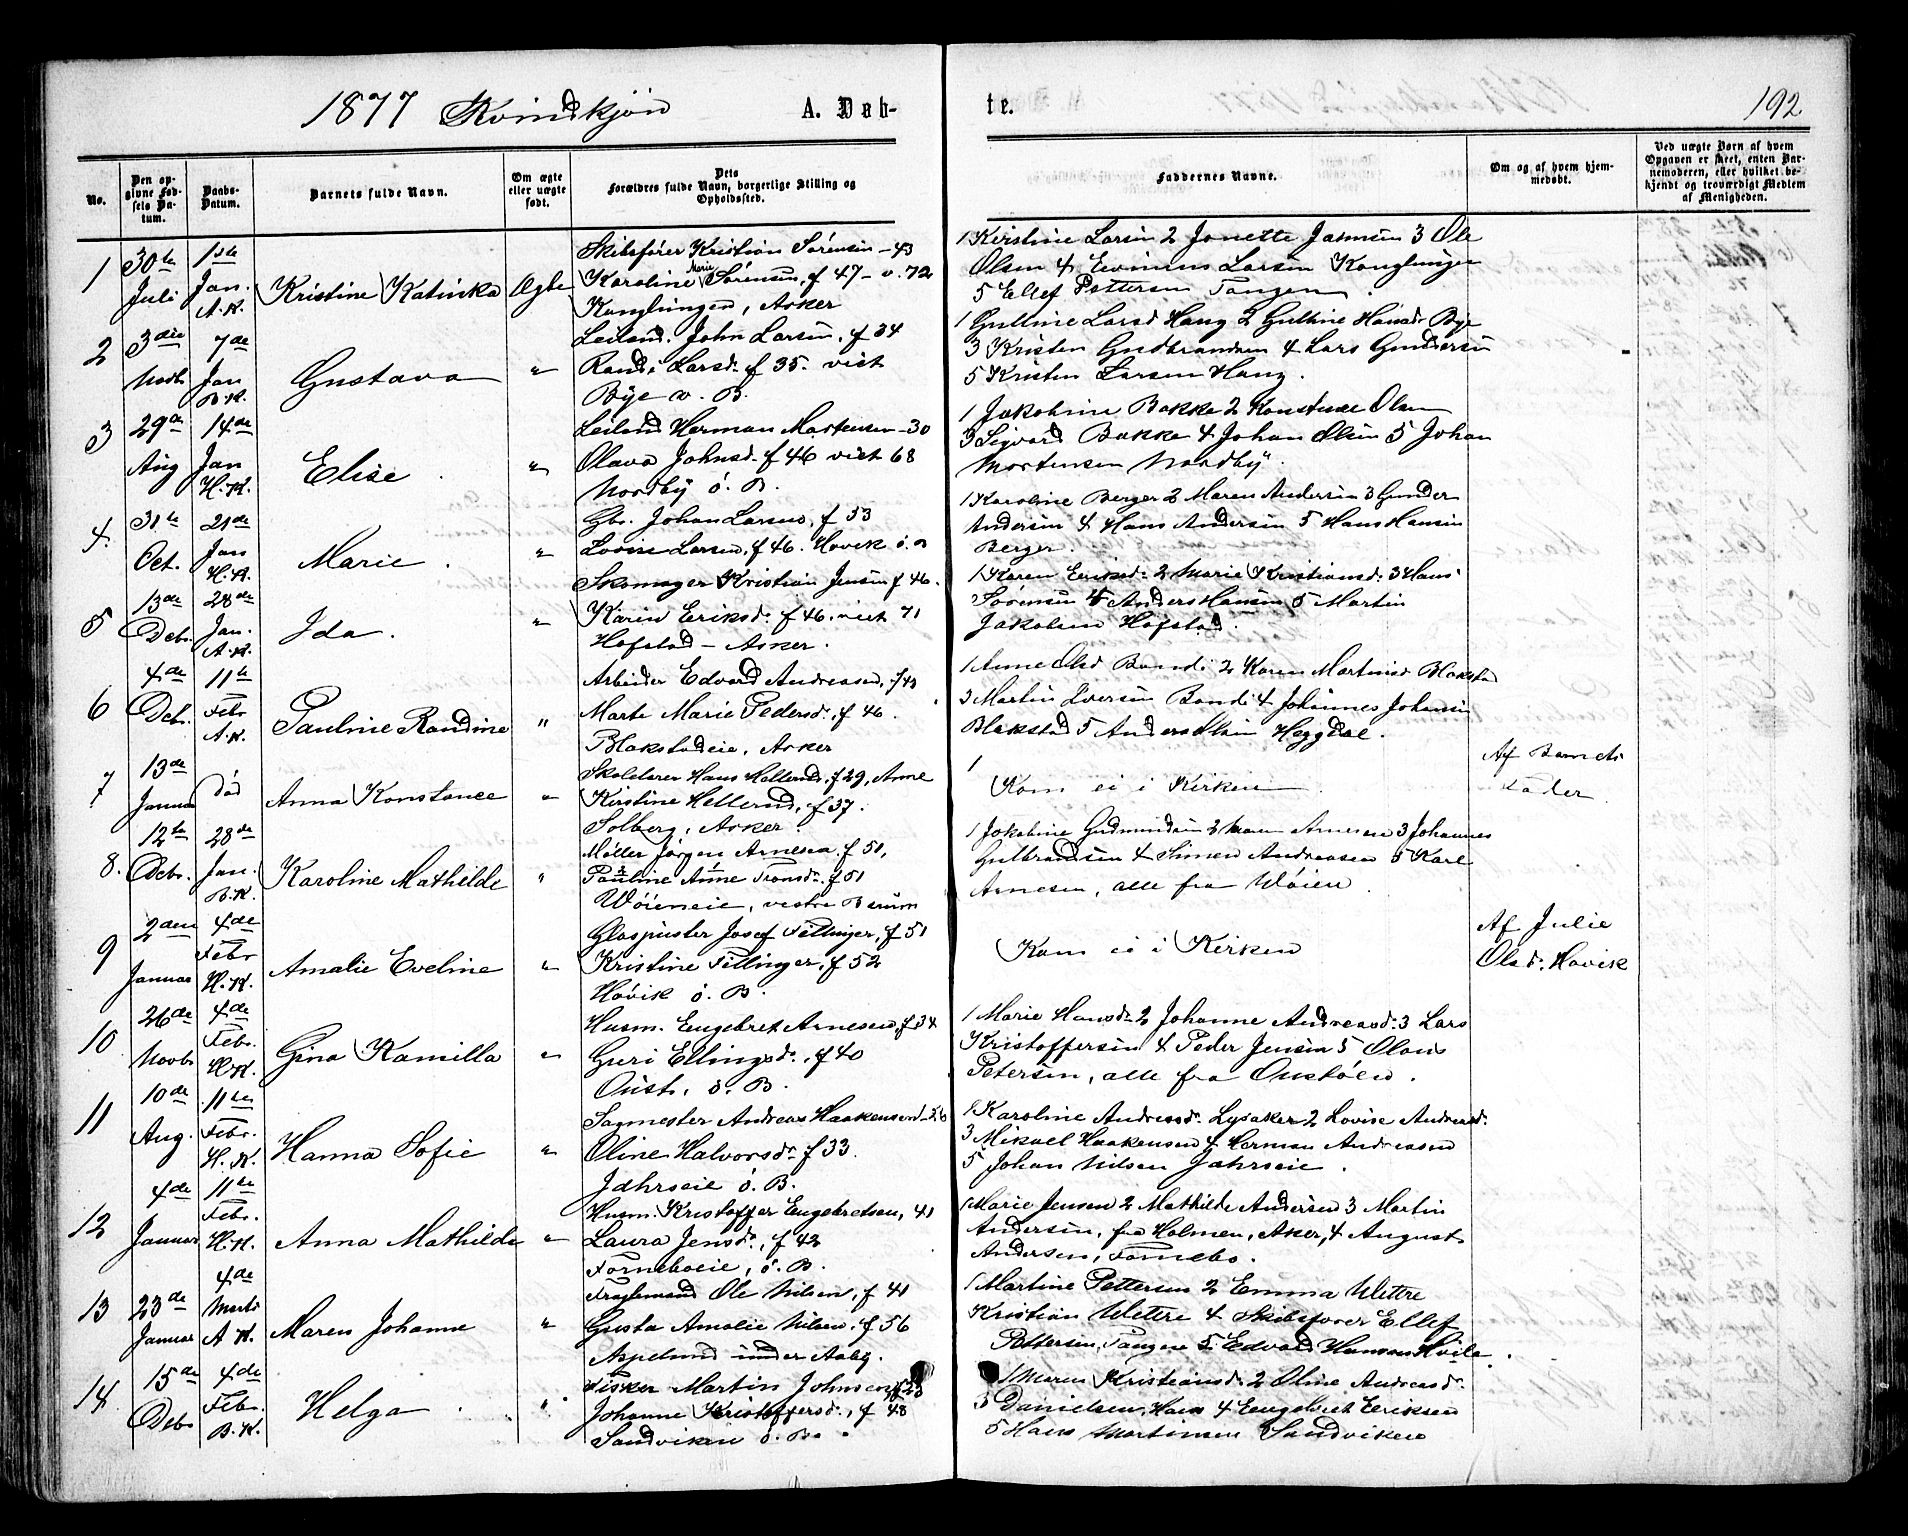 1877 Kvindkjön A. Døb-
te. 192
No.
Den opgivne Fødsels Datum.
Daabs-Datum.
Barnets fulde Navn.
Om ægte eller uægte født.
Dets Forældres fulde Navn, borgerlige Stilling og Opholdssted.
Faddernes Navne.
Om og af hvem hjemmedøbt.
Ved uægte Børn af hvem Opgaven er skeet, enten Barnemoderen, eller hvilket bekjendt og troværdigt Medlem af Menigheden.
1 30te Juli 1ste Jan. A.K. Kristine Katinka Ægte
Skibsfører Kristian Sørensen - 43
Karoline Marie Sørensen, f 47 - v. 72
Konglungen, Asker
1 Kirstine Larsen 2 Jonette Jansen 3 Ole
Olsen 4 Larsen Konglungen
5 Ellef Pettersen Tangen.
2 3die Novbr 7de Jan B.K. Gustava "
Leilend. John Larsen, f 34
Randi Larsd. f 35. viet
Bye v. B.
1 Gulline Larsd Haug 2 Guttine Hansd. Bye
3 Kristen Gudbrandsen 4 Lars Gundersen
5 Kristen Larsen Haug.
3 29de Aug 14de Jan H.K. Elise. "
Leilend Herman Mortensen - 30
Olava Johnsd. f 46 viet 68
Nordby ö. B.
1 Jakobine Bakke 2 Konstance Olsen
3 Sigvard Bakke 4 Johan Olsen 5 Johan
Mortensen Nordby.
4. 31te Oct. 21de Jan H.K. Marie. "
Gbr. Johan Larsen, f 53
Lovise Larsen, f 46. Høvik ö. B
1 Karoline Berger 2 Maren Andersen 3 Gunder
Andersen 4 Hans Andersen 5 Hans Hansen
Berger.
5 13de Debr. 28de Jan. A.K. Ida. "
Skomager Kristian Jensen f 46.
Karen Eriksd. f 46. viet 71
Hofstad - Asker.
1 Karen Eriksd. 2 Marie Kristiansd. 3 Hans
Sørensen 4 Anders Hansen 5 Martin
Jakobsen Hofstad.
6 4de Debr. 11te Febr A.K. Pauline Randine "
Arbeider Edvard Andreasen, f 43
Marte Marie Pedersd. f 46.
Blakstadeie, Asker
1 Anne Olsd Bondi 2 Karen Martinsd Blakstad
3 Martin Iversen Bondi 4 Johannes Johansen
Blakstad 5 Anders Olsen Heggdal.
7 13de Januar Död Anna Konstance "
Skolelærer Hans Hellerud, f 29, Anne
Kirstine Hellerud, f 37.
Solberg, Asker.
1 Kom ei i Kirken.
Af Barnets
Fader.
8. 12te Debr. 28de Jan. B.K. Karoline Mathilde "
Møller Jörgen Arnesen f 51,
Pauline Anne Tronsd. f 51
Wöieneie, vestre Bærum
1 Jakobine Gudmundsen 2 Arnesen 3 Johannes
Gulbrandsen 4 Simen Andreasen 5 Karl
Arnesen, alle fra Wöien.
9 2den Januar 4de Febr H.K. Amalie Eveline "
Glaspuster Josef Fillinger, f 51
Kristine Fillinger, f 52
Hövik ö. B.
Kom ei i Kirken
Af Julie
Olsd. Høvik
10 26de Novbr 4de Febr. H.K. Gina Kamilla "
Husm. Engebret Arnesen, f 34
Guri Ellingsd., f 40
Oust. ö. B.
1 Marie Hansd. 2 Johanne Andreasd. 3 Lars
Kristoffersen 4 Peder Jensen 5 Olaus
Petersen, alle fra Oustöen.
11 10de Aug. 11te Febr. H.K. Hanna Sofie "
Sagmester Andreas Haakensen - 26
Oline Halvorsd. f 33.
Jahrseie ö. B.
1 Karoline Andreasd. Lysaker 2 Lovise Andreasd.
3 Mikael Haakensen 4 Herman Andreasen
5 Johan Nilsen Jahrseie.
12 4de Januar 11te Febr. H.K. Anna Mathilde "
Husm. Kristoffer Engebretsen, 41
Laura Jensd., f 42
Forneboeie, ö. B.
1 Marie Jensen 2 Mathilde Andersen 3 Martin
Andersen, fra Holmen, Aker, 4 August
Andersen, Fornebo.
13 23de Januar 4de Marts A.K. Maren Johanne "
Ole Nilsen, f 41
Gusta Amalie Nilsen, f 56
Aspelund under Aaby.
1 Martine Pettersen 2 Emma Wettre
Kristian Wettre 4 Skibsfører Ellef
Pettersen, Tangen 5 Edvard Hansen Hvile.
14. 15de Debr 4de Febr. B.K. Helga. "
Fisker Martin Johnsen, f 28
Johanne Kristoffersd., f 48
Sandviken ö. B.
1 Maren Kristiansd. 2 Oline Andreasd.
3 Danielsen, Hans 4 Engebret Eriksen
5 Hans Martinsen Sandviken